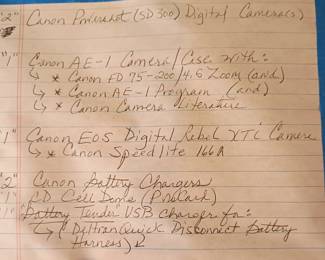 "2" Canon Powershot (SD300) Digital Camera(s)
"1" Canon AE-1 Camera/Case with:
↳ * Canon FD 75-200/4.5 Zoom (and)
↳ * Canon AE-1 Program (and)
↳ * Canon Camera Literature
"1" Canon EOS Digital Rebel XTi Camera
↳ * Canon Speedlite 166A
"2" Canon Battery Chargers
"1" CD Cell Dome (ProCard)
"1" "Battery Tender" USB Charger for:
↳ (Deltran Quick Disconnect Battery
Harness)